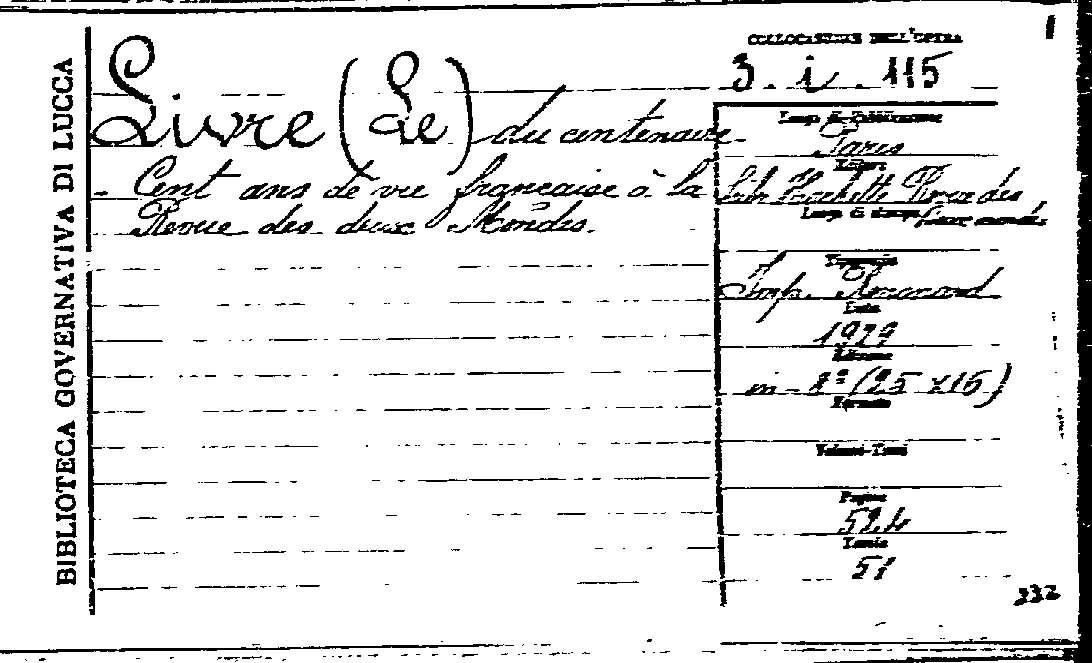 BIBLIOTECA GOVERNATIVA DI LUCCA
COLLOCAZIONE DELL'OPERA
3. i. 115
Livre (Le) du centenaire.
- Cent ans de vie française à la
Revue des deux Mondes.
Luogo di Pubblicazione
Paris
Editore
Lib. Hachette Revue des
deux mondes
Luogo di stampa
Tipografia
Imp.
Data
1929
Edizione
in-8º (25 x 16)
Formato
Volumi-Tomi
Pagine
524
Tavole
51
332